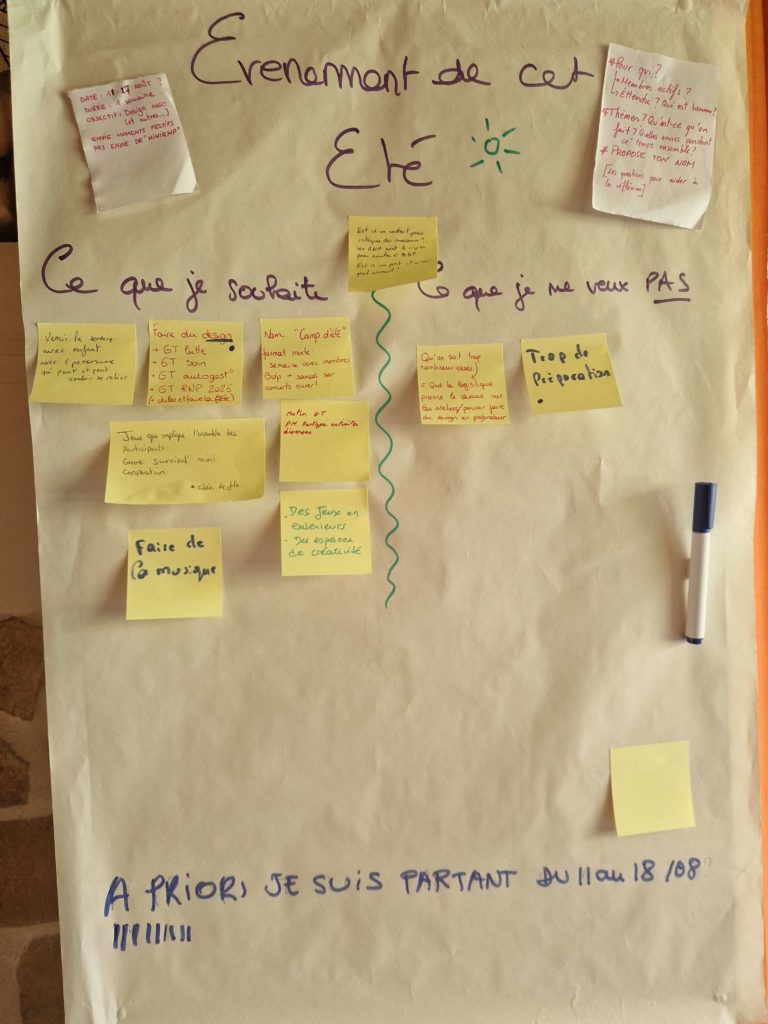 Evenement de cet
Eté
DATE : 11-17 AOÛT ?
DURÉE : 1 semaine
OBJECTIF : Design asso
(et autres...)
ENVIE MOMENTS FESTIFS
PAS ENVIE DE "MINIRNP"
* Pour qui ?
↳ Membres actifs ?
↳ Étendu ? Qui est bienvenu ?
* Thèmes ? Qu'est-ce qu'on
fait ? Quelles envies pendant
ce temps ensemble ?
* PROPOSE TON NOM
[des questions pour aider à
la réflexion]
Est ce un endroit pour
intégrer des nouveaux ?
Ce que je souhaite
Ce que je ne veux PAS
Venir la semaine
avec enfant
avec 1 personne
qui peut et peut
vouloir se relier
Faire du design
+ GT lutte
+ GT soin
+ GT autogest°
+ GT RNP 2026
(+ chiller et faire la fête)
Nom "Camp d'été"
format mixte :
semaine avec membres
Bdp + samedi soir
concerts ouvert
Matin GT
PM Partage activités
diverses
Jeux qui implique l'ensemble des
Participants.
Genre "survival" mini
Cooperation
* idée de flo
• Des Jeux en
extérieurs
• Des espaces
de créativité
Faire de
la musique
Qu'on soit trop
nombreux·euses
= Que la logistique
prenne le dessus sur
les ateliers/pouvoir faire
du design en profondeur
Trop de
Préparation
A PRIORI JE SUIS PARTANT DU 11 au 18 /08